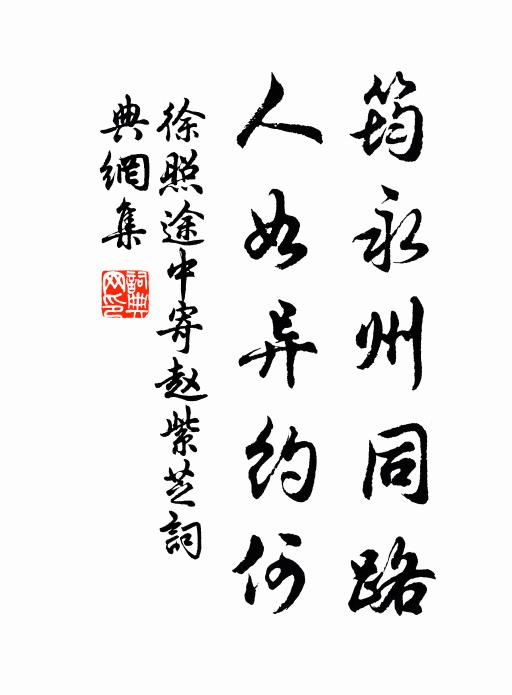 筠永州同路
人如异约何
徐照途中寄赵紫芝詞
典網集
詞典网印